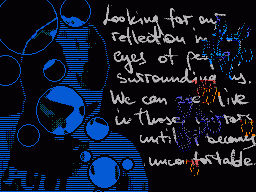 Looking for our
reflection in
eyes of people
surrounding us.
We can live
in those mirrors
until it becomes
uncomfortable.